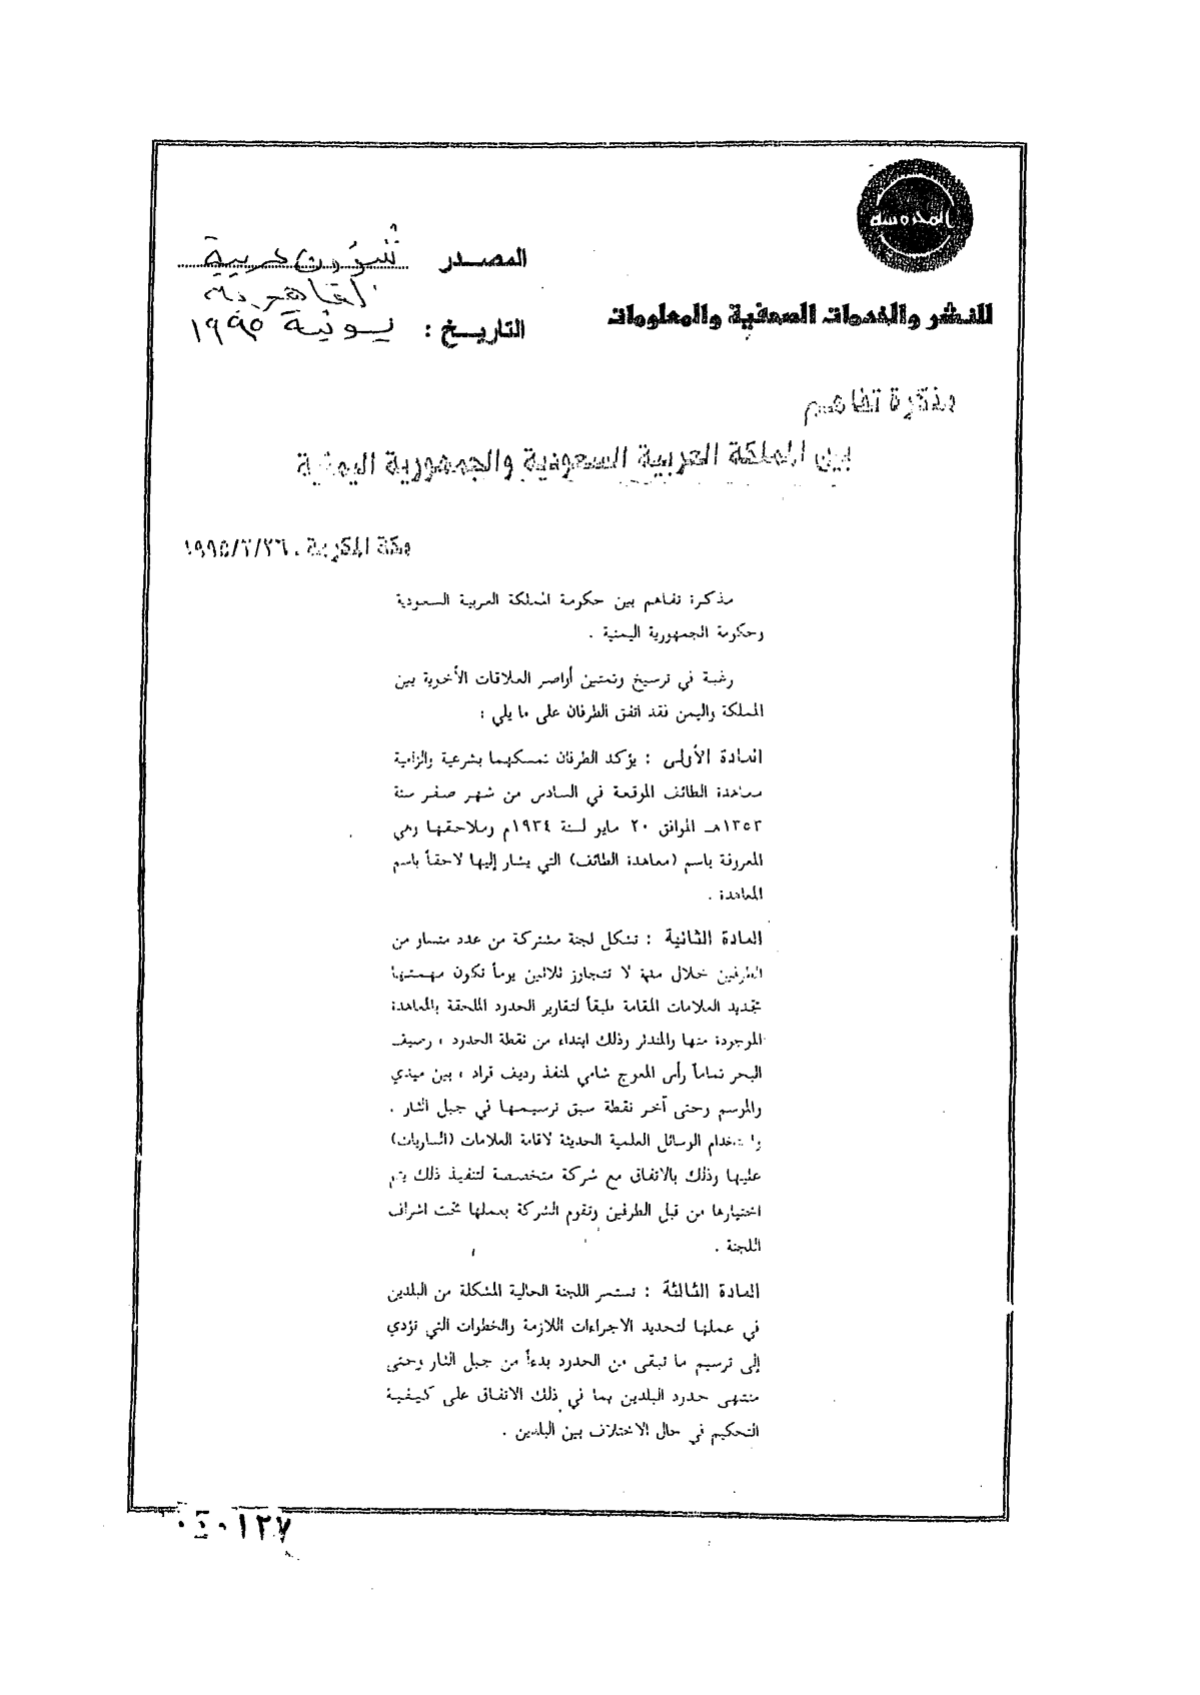 المحروسة
المصدر شؤون عربية
القاهرية
للنشر والخدمات الصحفية والمعلومات
التاريخ : يونية ١٩٩٥
مذكرة تفاهم
بين المملكة العربية السعودية والجمهورية اليمنية
مكة المكرمة ، ١٩٩٥/٢/٢٦
مذكرة تفاهم بين حكومة المملكة العربية السعودية
وحكومة الجمهورية اليمنية .
رغبة في ترسيخ وتمتين أواصر العلاقات الأخوية بين
المملكة واليمن فقد اتفق الطرفان على ما يلي :
المادة الأولى : يؤكد الطرفان تمسكهما بشرعية والزامية
معاهدة الطائف الموقعة في السادس من شهر صفر سنة
١٣٥٣هـ الموافق ٢٠ مايو لسنة ١٩٣٤م وملاحقها وهي
المعروفة باسم (معاهدة الطائف) التي يشار إليها لاحقاً باسم
المعاهدة .
المادة الثانية : تشكل لجنة مشتركة من عدد متساو من
الطرفين خلال مدة لا تتجاوز ثلاثين يوماً تكون مهمتها
تجديد العلامات المقامة طبقاً لتقارير الحدود الملحقة بالمعاهدة
الموجودة منها والمندثر وذلك ابتداء من نقطة الحدود ، رصيف
البحر تماماً رأس المعوج شامي لمنفذ رديف قراد ، بين ميدي
والموسم وحتى آخر نقطة سبق ترسيمها في جبل الثار .
واستخدام الوسائل العلمية الحديثة لاقامة العلامات (الساريات)
عليها وذلك بالاتفاق مع شركة متخصصة لتنفيذ ذلك يتم
اختيارها من قبل الطرفين وتقوم الشركة بعملها تحت اشراف
اللجنة .
المادة الثالثة : تستمر اللجنة الحالية المشكلة من البلدين
في عملها لتحديد الاجراءات اللازمة والخطوات التي تؤدي
إلى ترسيم ما تبقى من الحدود بدءاً من جبل الثار وحتى
منتهى حدود البلدين بما في ذلك الاتفاق على كيفية
التحكيم في حال الاختلاف بين البلدين .